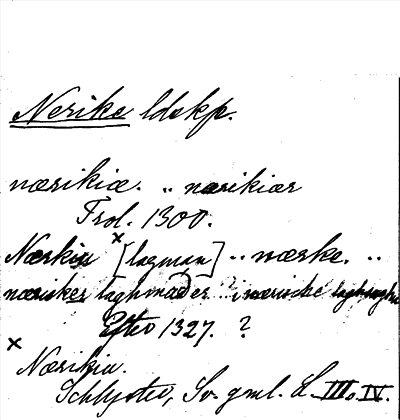 Nerike ldskp.
nærikiæ. „ nærikiær
Frol. 1300.
Nærkiu × [lagman] „ nærke. „
næriker laghmaðer „ i nærische
Efter 1327. ?
×
Nærikiu.
Schlyter, Sv. gml. L. III. IV.